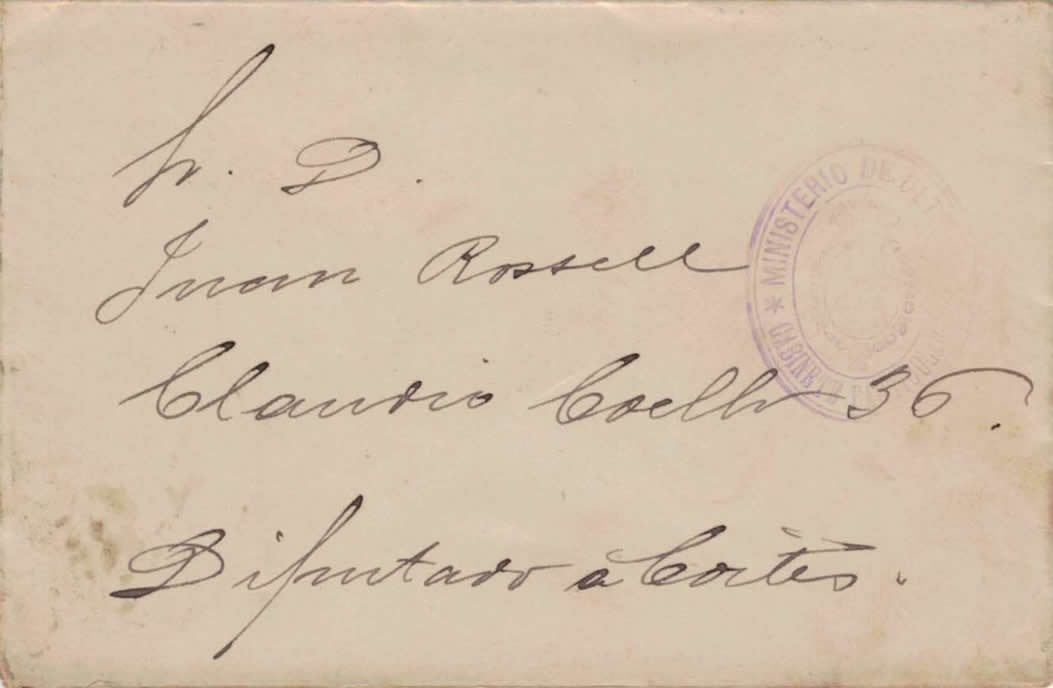 Sr. D.
Juan Rossell
Claudio Coello 36.
Diputado à Cortès.
* MINISTERIO DE ULT
GABINETE